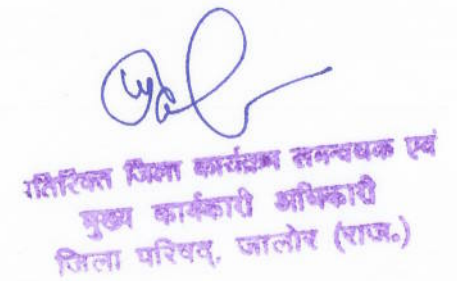 अतिरिक्त जिला कार्यक्रम समन्वयक एवं
मुख्य कार्यकारी अधिकारी
जिला परिषद्, जालोर (राज.)